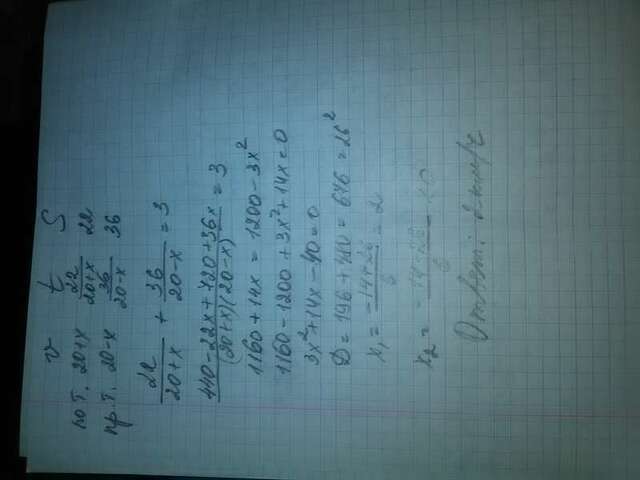 v t S
по т. 20+x 22/20+x 22
пр. т. 20-x 36/20-x 36
22/20+x + 36/20-x = 3
440-22x+720+36x/(20+x)(20-x) = 3
1160+14x = 1200-3x²
1160-1200+3x²+14x=0
3x²+14x-40=0
D=196+480=676=26²
x₁ = -14+26/6 = 2
x₂ = -14-26/6 < 0
Ответ: 2 км/ч